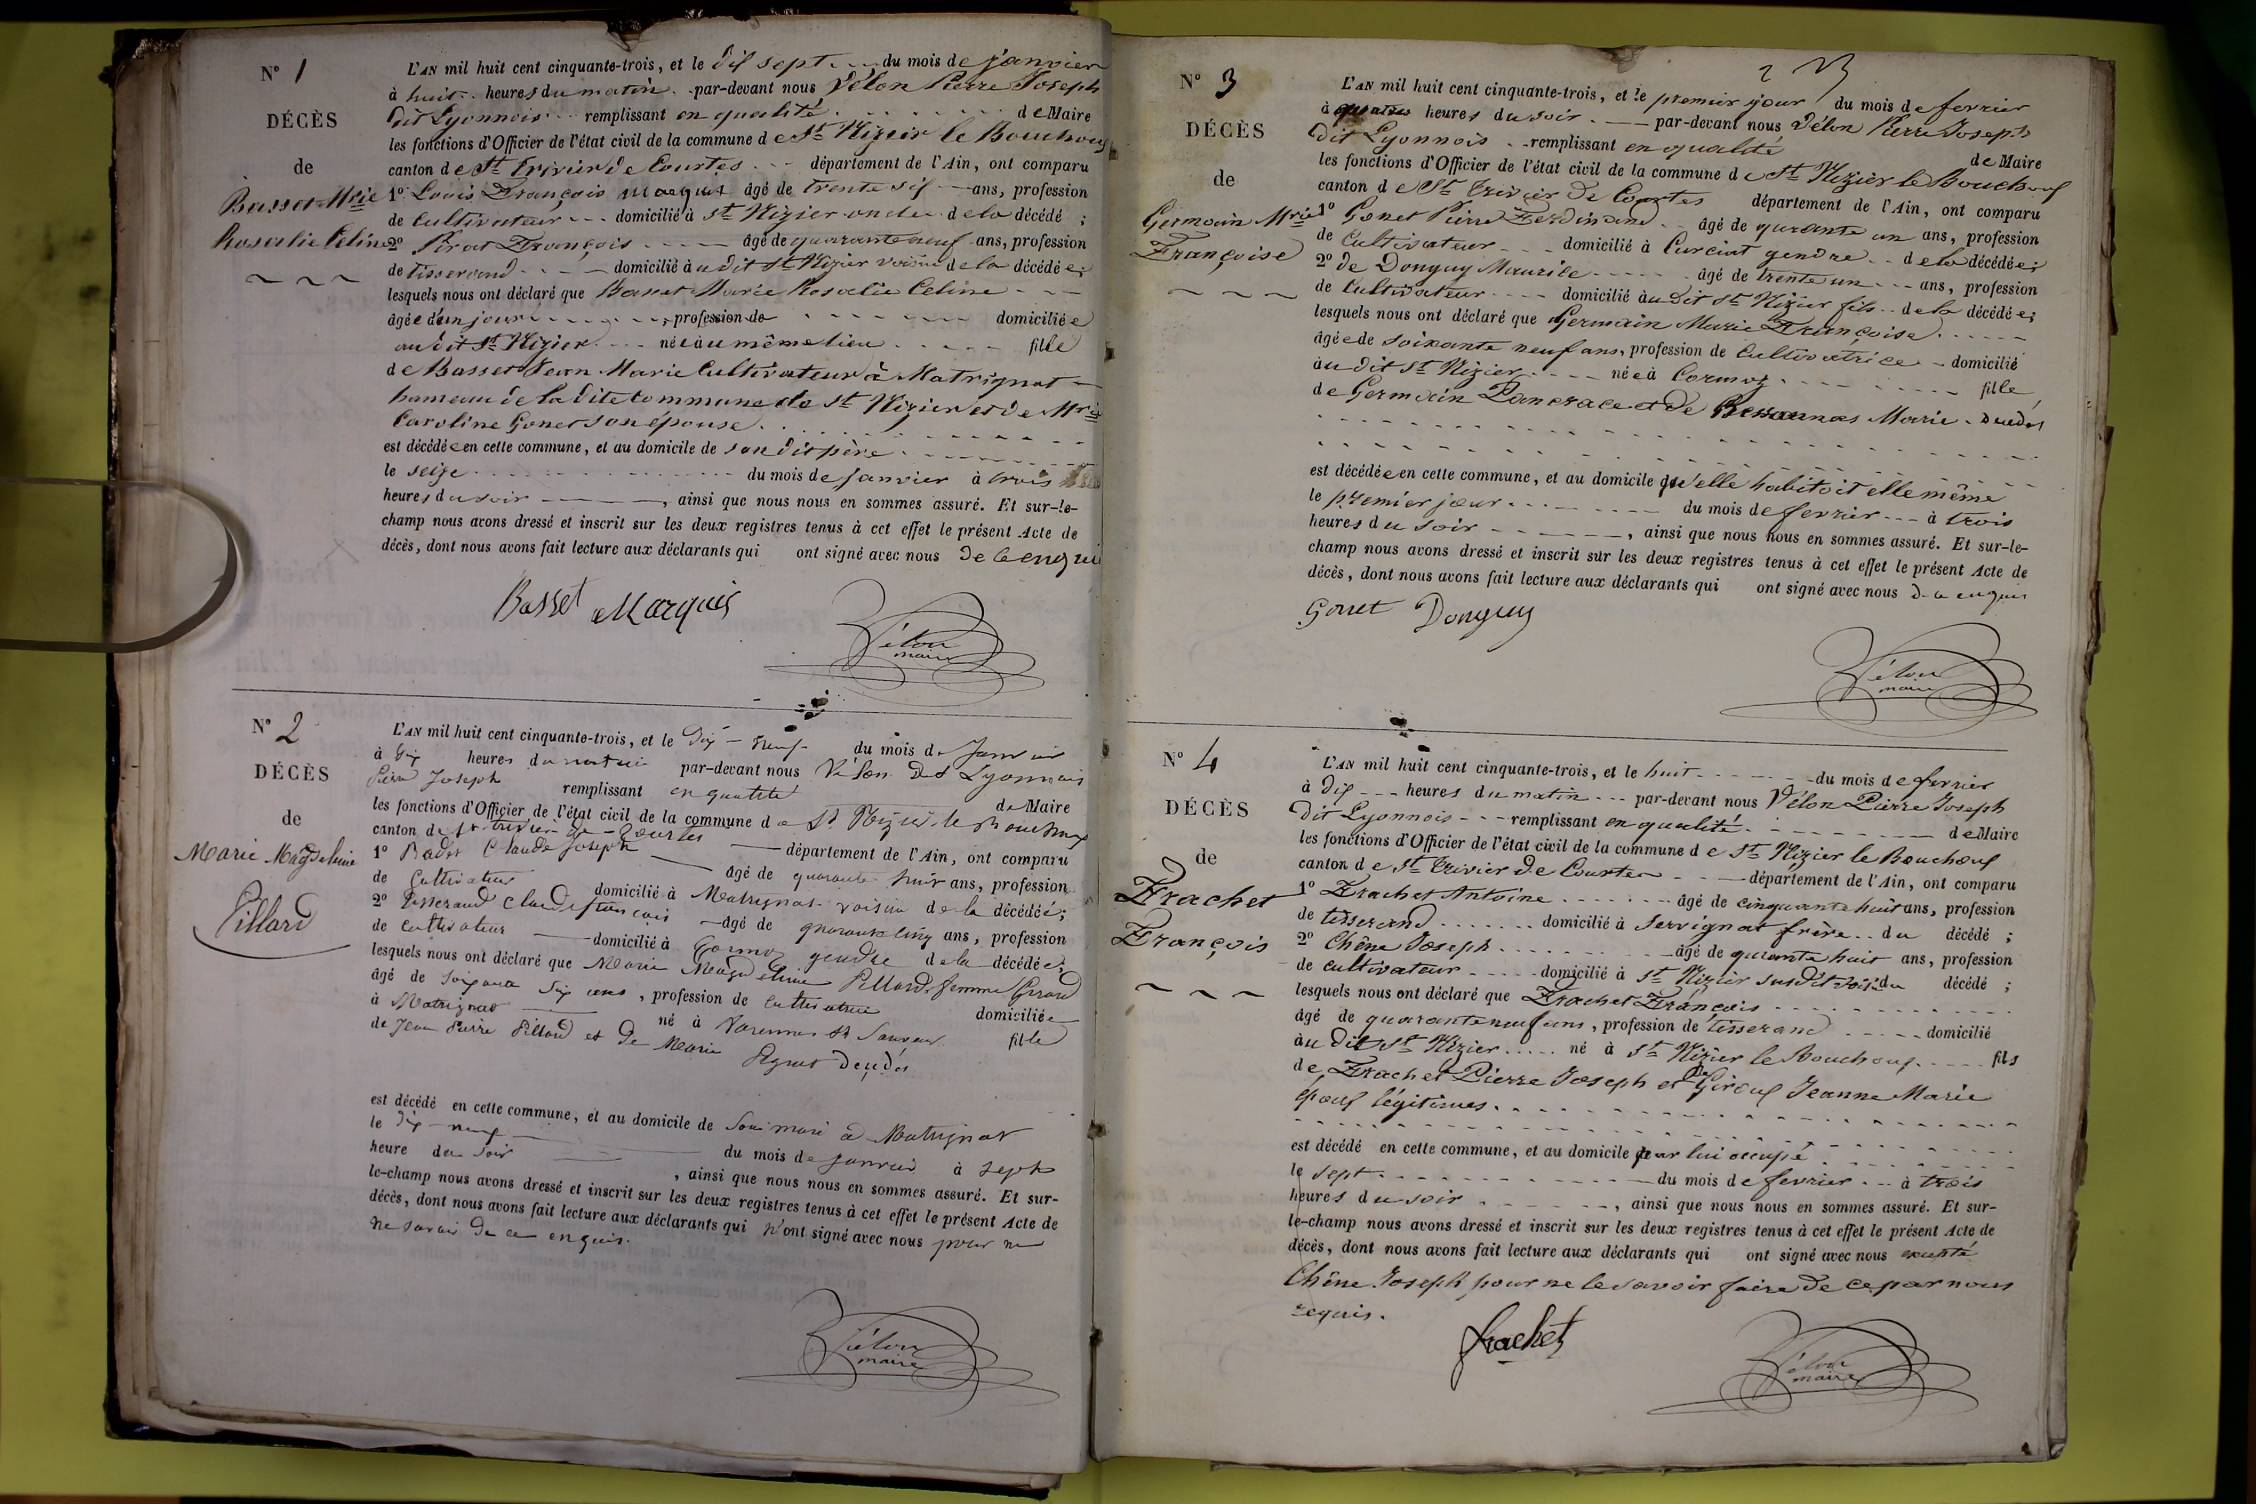 N° 1
DÉCÈS
de
Basset Mrie
Rosalie Celine
L'AN mil huit cent cinquante-trois, et le dix sept du mois de janvier
à huit heures du matin par-devant nous Vélon Pierre Joseph
dit Lyonnois remplissant en qualité de Maire
les fonctions d'Officier de l'état civil de la commune de St Nizier le Bouchoux
canton de St Trivier de Courtes département de l'Ain, ont comparu
1° Louis François Marquis âgé de trente six ans, profession
de cultivateur domicilié à St Nizier oncle de la décédé ;
2° Pirat François âgé de quarante neuf ans, profession
de tisserand domicilié audit St Nizier voisin de la décédée ;
lesquels nous ont déclaré que Basset Marie Rosalie Celine
âgée d'un jour, profession de domiciliée
audit St Nizier née au même lieu fille
de Basset Jean Marie Cultivateur à Matrignat
hameau de la dite commune de St Nizier et de Mrie
Caroline Gonet son épouse.
est décédée en cette commune, et au domicile de son dit père
le seize du mois de janvier à trois
heures du soir, ainsi que nous nous en sommes assuré. Et sur-le-
champ nous avons dressé et inscrit sur les deux registres tenus à cet effet le présent Acte de
décès, dont nous avons fait lecture aux déclarants qui ont signé avec nous de ce enquis
Basset Marquis
Vélon
maire
N° 2
DÉCÈS
de
Marie Magdeleine
Pillard
L'AN mil huit cent cinquante-trois, et le Dix-neuf du mois de Janvier
à dix heures du matin par-devant nous Vélon dit Lyonnais
Pierre Joseph remplissant en qualité de Maire
les fonctions d'Officier de l'état civil de la commune de St Nizier le Bouchoux
canton de St trivier de Courtes département de l'Ain, ont comparu
1° Claude Joseph âgé de quarante huit ans, profession
de Cultivateur domicilié à Matrignat voisin de la décédée ;
2° Tisserand Claude françois âgé de quarante cinq ans, profession
de cultivateur domicilié à Cormoz gendre de la décédée ;
lesquels nous ont déclaré que Marie Magdeleine Pillard femme
âgé de soixante six ans, profession de cultivatrice domiciliée
à Matrignat né à Varennes St Sauveur fille
de Jean Pierre Pillard et de Marie décédés
est décédé en cette commune, et au domicile de son mari à Matrignat
le dix-neuf du mois de janvier à sept
heure du soir, ainsi que nous nous en sommes assuré. Et sur-
le-champ nous avons dressé et inscrit sur les deux registres tenus à cet effet le présent Acte de
décès, dont nous avons fait lecture aux déclarants qui n'ont signé avec nous pour ne
ne savoir de ce enquis.
Vélon
maire
N° 3
DÉCÈS
de
Germain Mrie
Françoise
L'AN mil huit cent cinquante-trois, et le premier jour du mois de fevrier
à quatres heures du soir par-devant nous Vélon Pierre Joseph
dit Lyonnois remplissant en qualité de Maire
les fonctions d'Officier de l'état civil de la commune de St Nizier le Bouchoux
canton de St Trivier de Courtes département de l'Ain, ont comparu
1° Gonet Pierre Ferdinand âgé de quarante un ans, profession
de Cultivateur domicilié à Curciat gendre de la décédée ;
2° de Donguy Maurile âgé de trente un ans, profession
de Cultivateur domicilié audit St Nizier fils de la décédée ;
lesquels nous ont déclaré que Germain Marie Françoise
âgée de soixante neuf ans, profession de Cultivatrice domicilié
audit St Nizier née à Cormoz fille
de Germain Pancrace et de Marie decedés
est décédée en cette commune, et au domicile qu'elle habitoit elle même
le premier jour du mois de fevrier à trois
heures du soir, ainsi que nous nous en sommes assuré. Et sur-le-
champ nous avons dressé et inscrit sur les deux registres tenus à cet effet le présent Acte de
décès, dont nous avons fait lecture aux déclarants qui ont signé avec nous de ce enquis
Gonet Donguy
Vélon
maire
N° 4
DÉCÈS
de
Frachet
François
L'AN mil huit cent cinquante-trois, et le huit du mois de fevrier
à dix heures du matin par-devant nous Vélon Pierre Joseph
dit Lyonnois remplissant en qualité de Maire
les fonctions d'Officier de l'état civil de la commune de St Nizier le Bouchoux
canton de St Trivier de Courtes département de l'Ain, ont comparu
1° Frachet Antoine âgé de cinquante huit ans, profession
de tisserand domicilié à Servignat frère du décédé ;
2° Chêne Joseph âgé de quarante huit ans, profession
de cultivateur domicilié à St Nizier susdit voisin du décédé ;
lesquels nous ont déclaré que Frachet François
âgé de quarante neuf ans, profession de tisserand domicilié
audit St Nizier né à St Nizier le Bouchoux fils
de Frachet Pierre Joseph et de Giroux Jeanne Marie
époux légitimes.
est décédé en cette commune, et au domicile par lui occupé
le sept du mois de fevrier à trois
heures du soir, ainsi que nous nous en sommes assuré. Et sur-
le-champ nous avons dressé et inscrit sur les deux registres tenus à cet effet le présent Acte de
décès, dont nous avons fait lecture aux déclarants qui ont signé avec nous excepté
Chêne Joseph pour ne le savoir faire de ce par nous
requis.
frachet
Vélon
maire